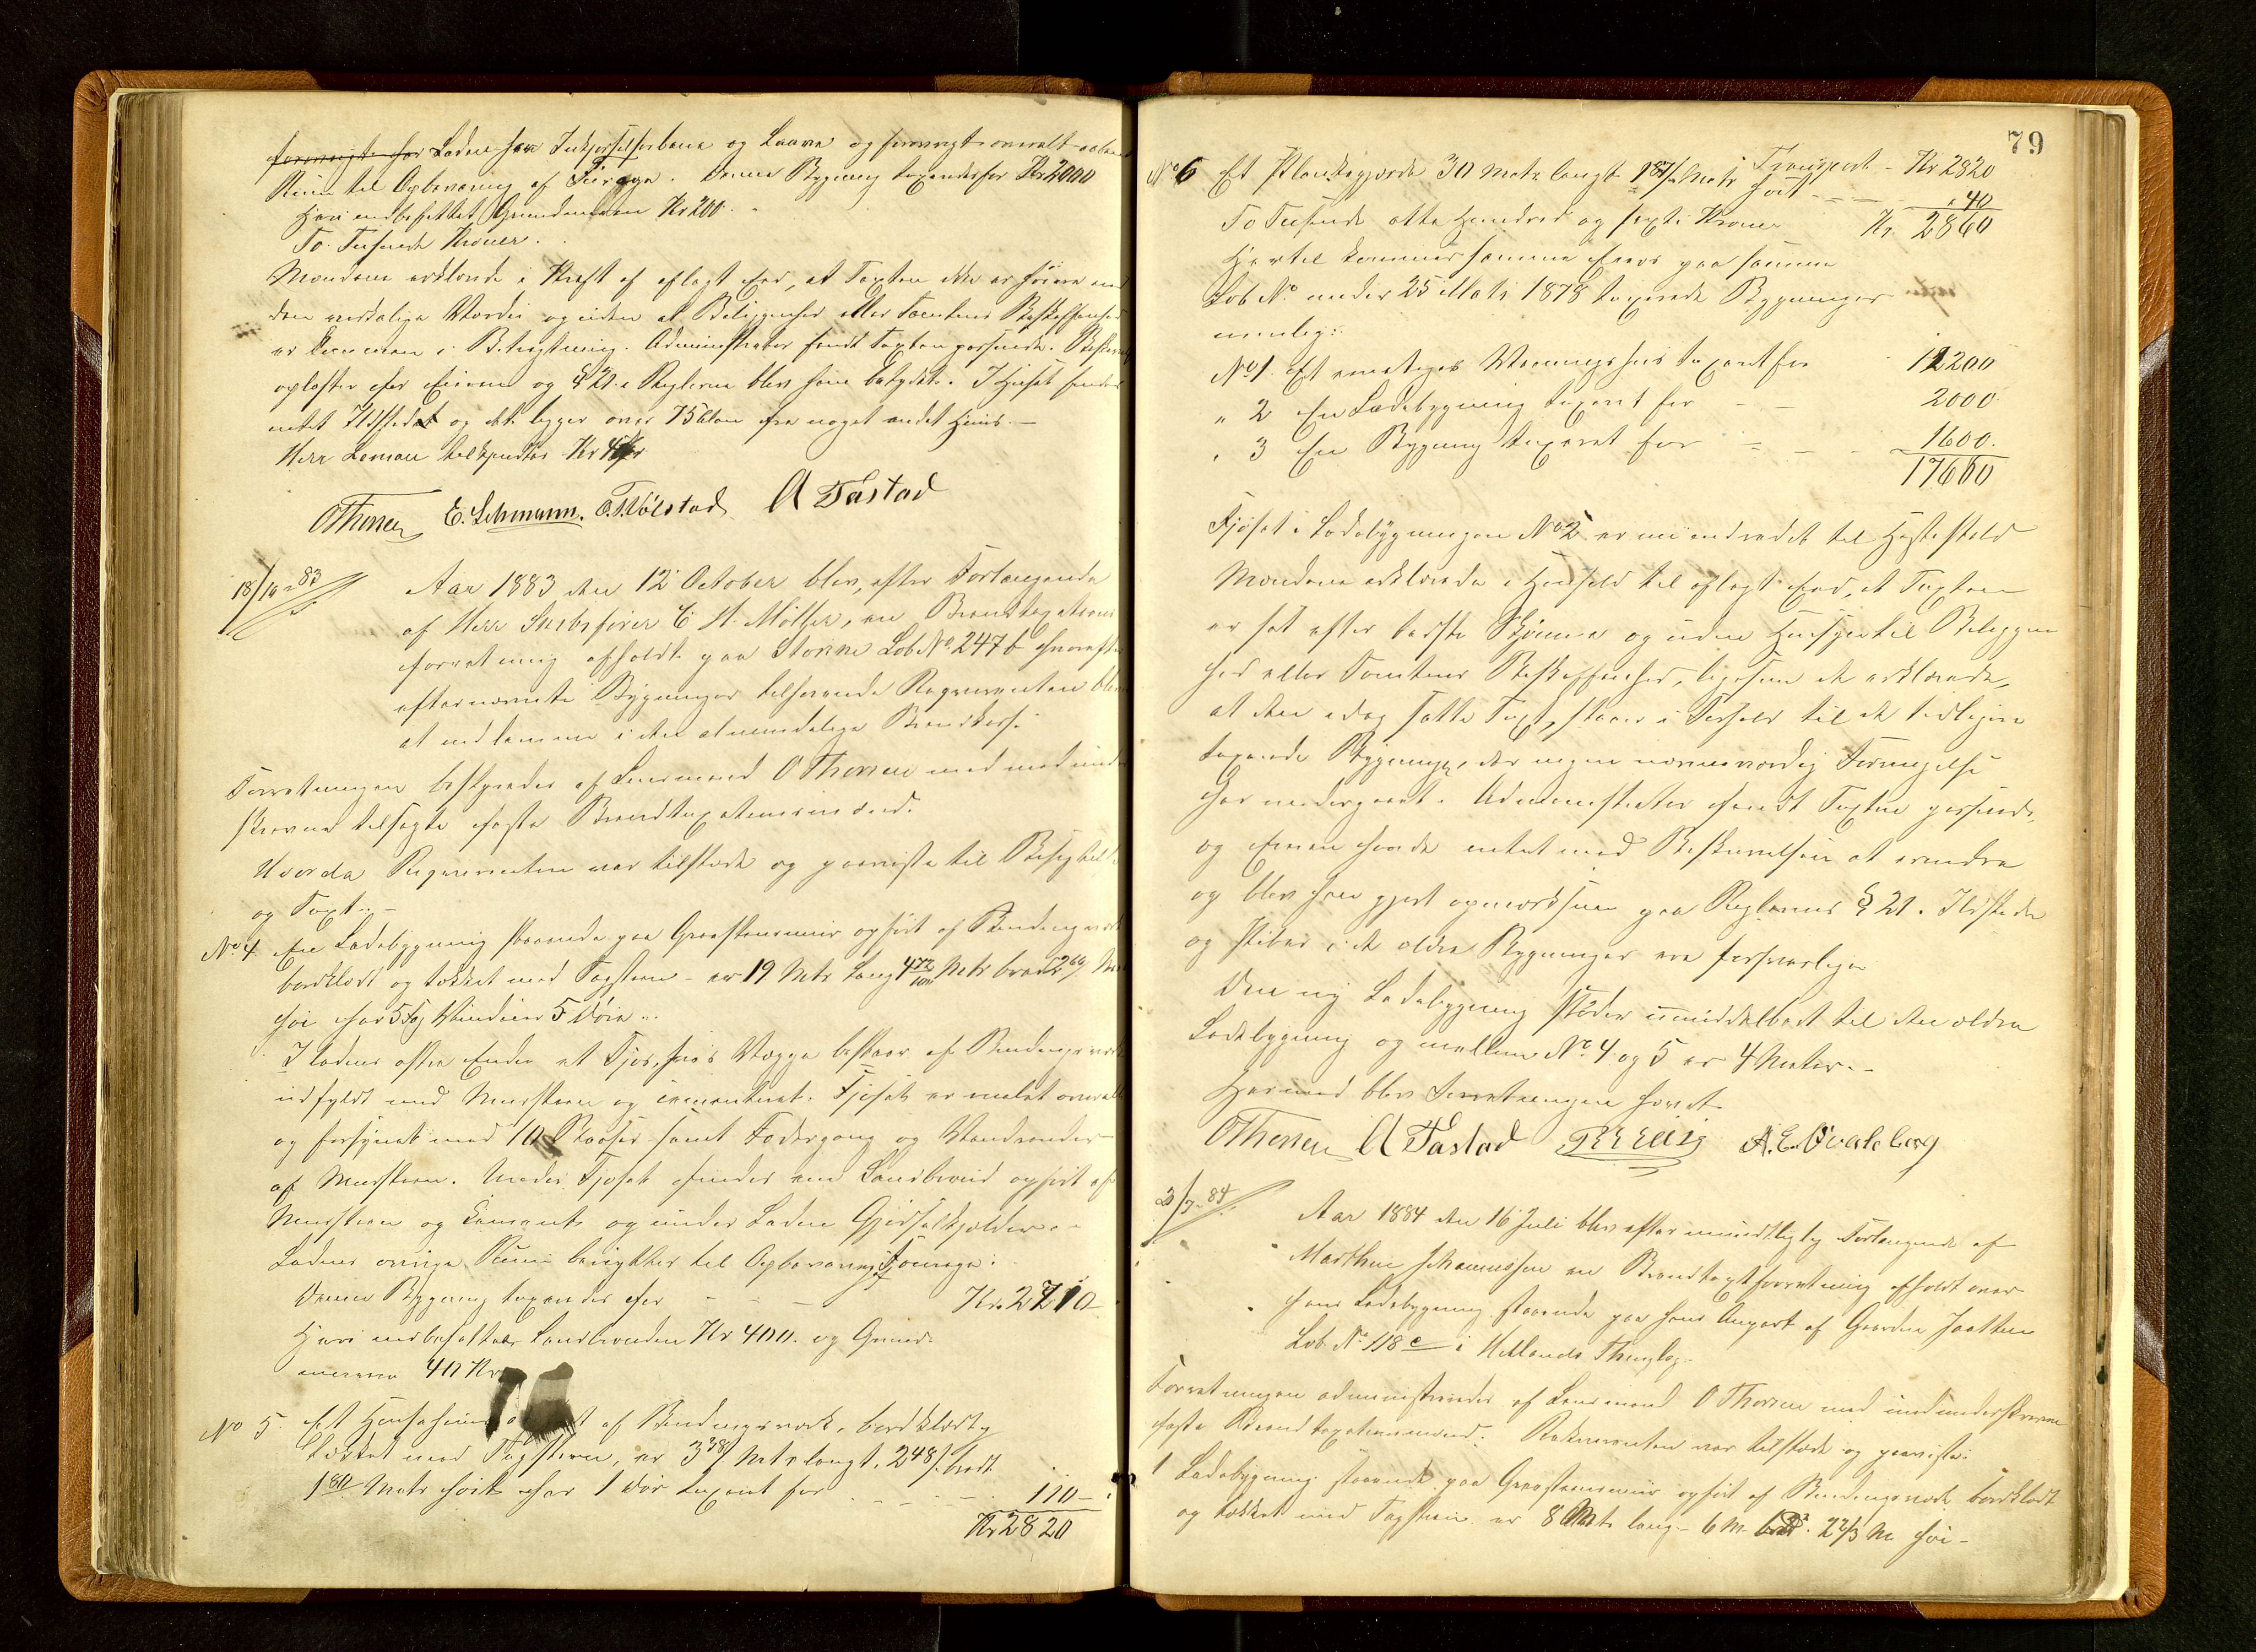 Laden har Indkjørselsbane og Laave og forøvrigt overalt
Rum til Opbevaring af Furage. Denne Bygning taxeredes for Kr 2000
Heri indbefattet Grundmuren Kr 200.
To Tusende Kroner.
Mændene erklærede i Kraft af aflagt Eed, at Taxten ikke er høiere end
den virkelige Værdi og uden at Beliggenhed eller Tomtens Beskaffenhed
er kommen i Betragtning. Administrator fandt Taxten passende.
oplæstes for Eieren og § 21 i Reglerne blev ham betydet. I Huset findes
intet Ildsted og det ligger over 75 Alen fra noget andet Huus.
Herr Leman tilkjendtes Kr
OThorsen E. Lehmann. A Tastad
18/10-83
Aar 1883 den 12 October blev, efter Forlangende
af Herr Skibsfører C H. Møller, en Brandtaxations
forretning afholdt paa Storm Lob No 247 b hvorefter
efternævnte Bygninger tilhørende Reqvirenten blev
at indlemme i den almindelige Brandkasse.
Forretningen bestyredes af Lensmand O Thorsen med med under
skrevne tilsagte faste Brandtaxationsmænd.
Hvorda Reqvirenten var tilstede og paaviste til Besigtelse
og Taxt.
No 4 En Ladebygning staaende paa Graastensmuur opført af Bindingsværk
bordklædt og tækket med Tagsteen - er 19 Metr lang 4 72/100 Metr bred
høi har 5 Fag Vinduer 5 Døre.
I Ladens østre Ende et Fjøs, hvis Vægge bestaar af Bindingsværk
udfyldt med Mursteen og cementeret. Fjøset er malet overalt
og forsynet med 10 Baaser samt Fodergang og Vandrender
af Mursteen. Under Fjøset findes en Landbrønd opført af
Mursteen og Cement og under Laden Gjødselkjelder.
Ladens øvrige Rum benyttes til Opbevaring af Fourage.
Denne Bygning taxeredes for - - - Kr. 2710
Heri indbefattes Landbrønden Kr 400. og Grund-
murene 40 Kr
No 5 Et Hønsehuus af Bindingsværk, bordklædt og
tækket med Tagsteen, er 3 38/ Metr langt, 2 48/ bredt
1 80 Metr høit har 1 Dør taxeret for - - - 110 -
Kr 2820
79
Transport - Kr 2820
No 6 Et Plankegjærde 30 Metr langt 1 87/ Metr høit - - - " 40
To Tusende otte Hundred og sexti Kroner Kr 2860
Hertil kommer samme Eiers paa samme
Lob No under 25 Marts 1878 taxerede Bygninger
nemlig:
No 1. Et Vaaningshus taxeret for 11200
" 2 En Ladebygning taxeret for - - 2000
" 3 En Bygning taxeret for - - - 1600.
17660
Fjøset i Ladebygningen No 2 er nu indredet til Hestestald
Mændene erklærede i Henhold til aflagt Eed, at Taxten
er sat efter bedste Skjønne og uden Hensyn til Beliggen
hed eller Tomtens Beskaffenhed, ligesom de erklærede,
at den idag satte Taxt, staar i Forhold til de tidligere
taxerede Bygninger, der ingen nævneværdig Forringelse
har undergaaet. Administrator fandt Taxten passende,
og Eieren havde intet mod Beskrivelsen at erindre
og blev han gjort opmærksom paa Reglernes § 21. Ildsteder
og Piber i de ældre Bygninger ere forsvarlige
Den ny Ladebygning støder umiddelbart til den ældre
Ladebygning og mellem No 4 og 5 er 4 Meter.
Hermed blev Forretningen hævet
OThorsen A Tastad A. E. Qvaleberg
2/7-84
Aar 1884 den 16 Juli blev efter mundtlig Forlangende af
Marthin Johannessen en Brandtaxtforretning afholdt over
hans Ladebygning staaende paa hans Anpart af Gaarden Jaatten
Lob No 118 c i Hetlands Thinglag.
Forretningen administreredes af Lensmand O Thorsen med medunderskrevne
faste Brandtaxationsmænd. Rekvirenten var tilstede og paaviste:
1 Ladebygning staaende paa Graasteensmuur opført af Bindingsværk bordklædt
og tækket med Tagsteen. er 8 Metr lang - 6 M bred. 2 2/3 M høi -